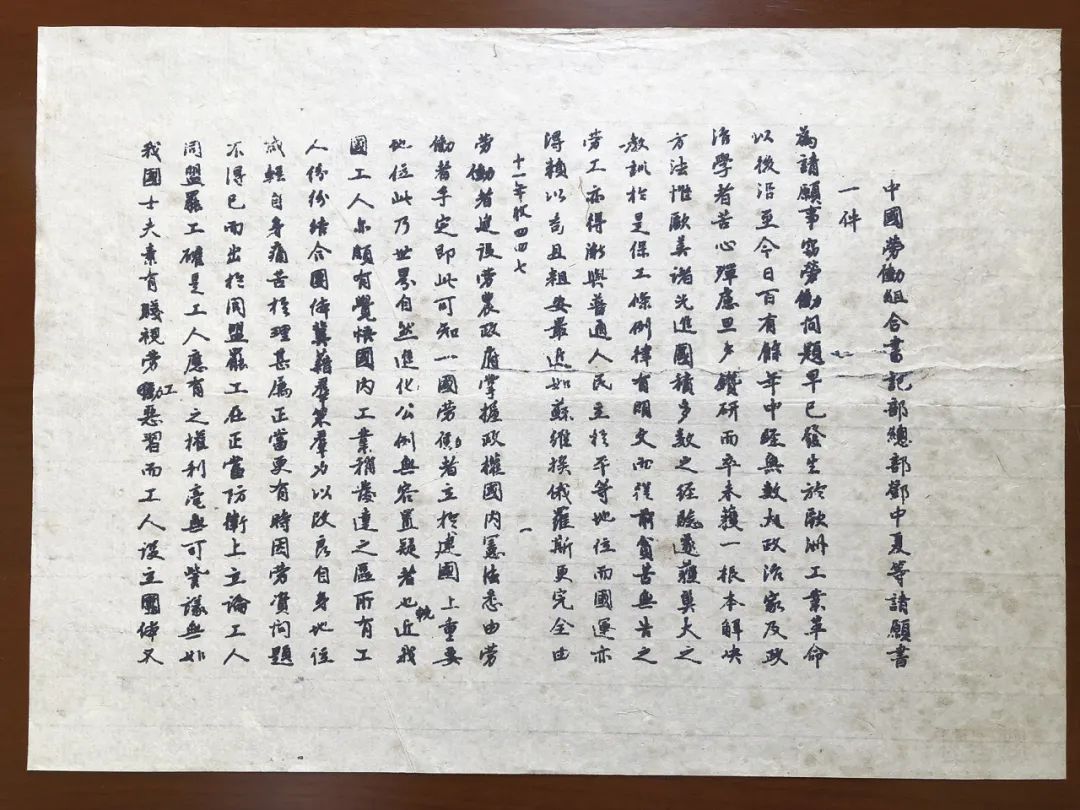 中國勞働組合書記部總部鄧中夏等請願書
一件
為請願事竊勞働問題早已發生於歐洲工業革命
以後沿至今日百有餘年中經無數大政治家及政
治學者苦心殫慮旦夕鑽研而卒未獲一根本解决
方法惟歐美諸先進國積多数之经驗遂獲莫大之
教訓於是保工條例律有明文而從前貧苦無告之
勞工亦得漸與普通人民立於平等地位而國運亦
得賴以苟且粗安最近如蘇維埃俄羅斯更完全由
十一年收四四七
一
勞働者建設勞農政府掌握政權國内憲法悉由勞
働者手定即此可知一國勞働者立於建國上重要
地位此乃世界自然進化公例無容置疑者也近我
國工人亦頗有覺悟國内工業稍發達之區所有工
人份份结合團体冀藉羣策羣力以改良自身地位
减輕自身痛苦於理甚属正當更有時因勞資問題
不得已而出於同盟罷工在正當防衛上立論工人
同盟罷工確是工人應有之權利毫無可訾議無如
我國士夫素有賤視劳工惡習而工人設立團体又